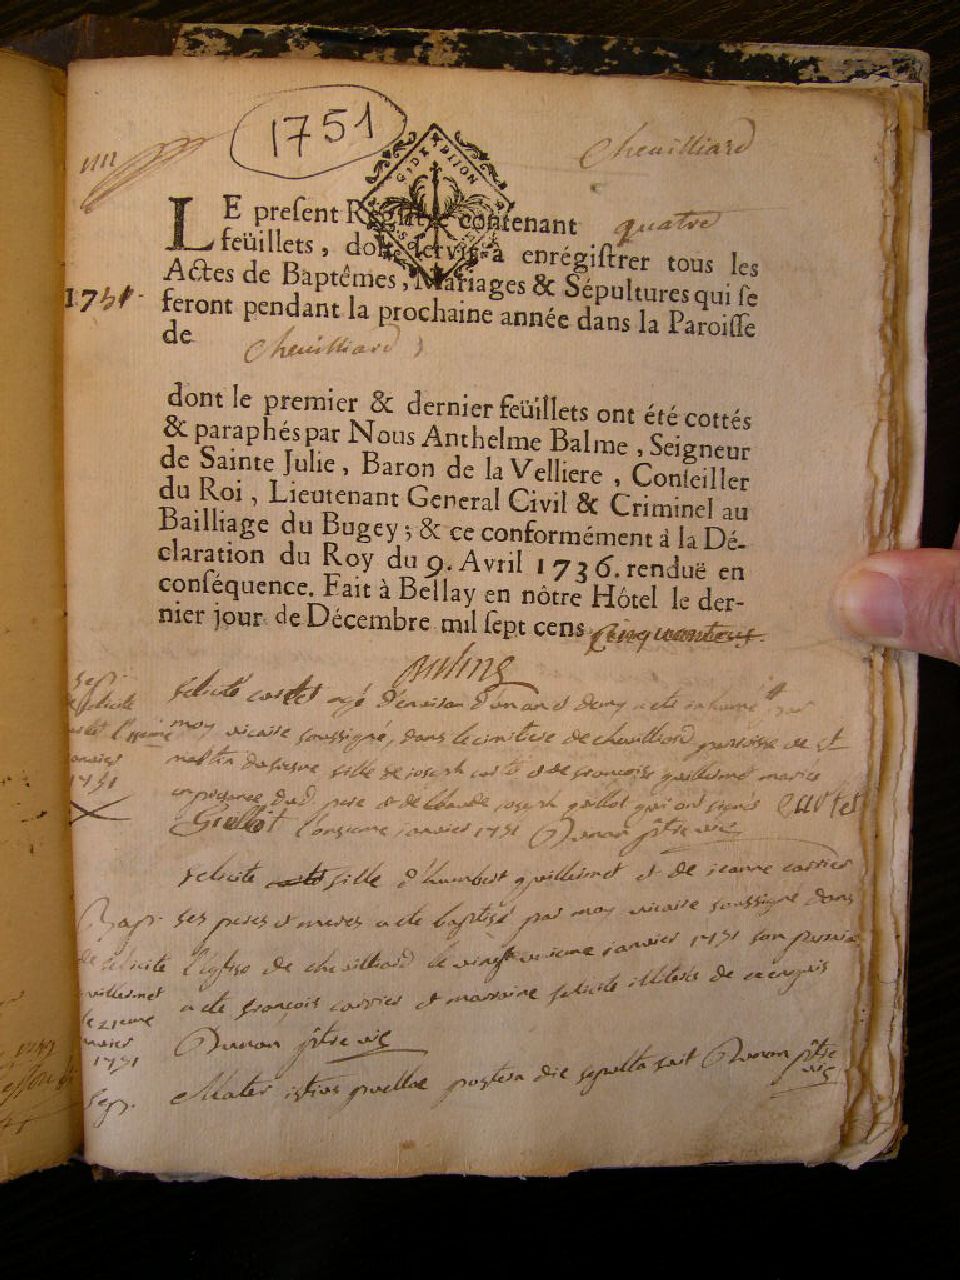 1751
Cheuilliard
GI DE DIJON
LE preſent Regiſtre contenant quatre
feüillets, dont ſervir à enrégiſtrer tous les
Actes de Baptêmes, Mariages & Sépultures qui ſe
1751.
feront pendant la prochaine année dans la Paroiſſe
de Cheuilliard
dont le premier & dernier feüillets ont été cottés
& paraphés par Nous Anthelme Balme, Seigneur
de Sainte Julie, Baron de la Velliere, Conſeiller
du Roi, Lieutenant General Civil & Criminel au
Bailliage du Bugey; & ce conformément à la Dé-
claration du Roy du 9. Avril 1736. renduë en
conſéquence. Fait à Bellay en nôtre Hôtel le der-
nier jour de Décembre mil ſept cens
sep.
felicite
janvier
1751
felicité age d'environ d'un an et demy a été inhumé par
moy vicaire soussigné, dans le cimitiere de cheuilliard paroisse de St
fille de joseph et de françoise guillermet mariés
en presence dud pere et de Claude joseph guillot qui ont signés Cartet
Guillot l'onzieme janvier 1751 Dunan ptre vic
felicite fille d'humbert guillermet et de jeanne carrier
Bap.
de felicite
guillermet
le 21eme
janvier
1751
ses peres et meres a été baptisé par moy vicaire soussigné dans
l'eglise de cheuilliard le vingt unieme janvier 1751 son parrain
a été françois carrier et marraine felicite de
Dunan ptre vic
sep.
Mater istius puellae postera die sepulta fuit Dunan ptre
vic